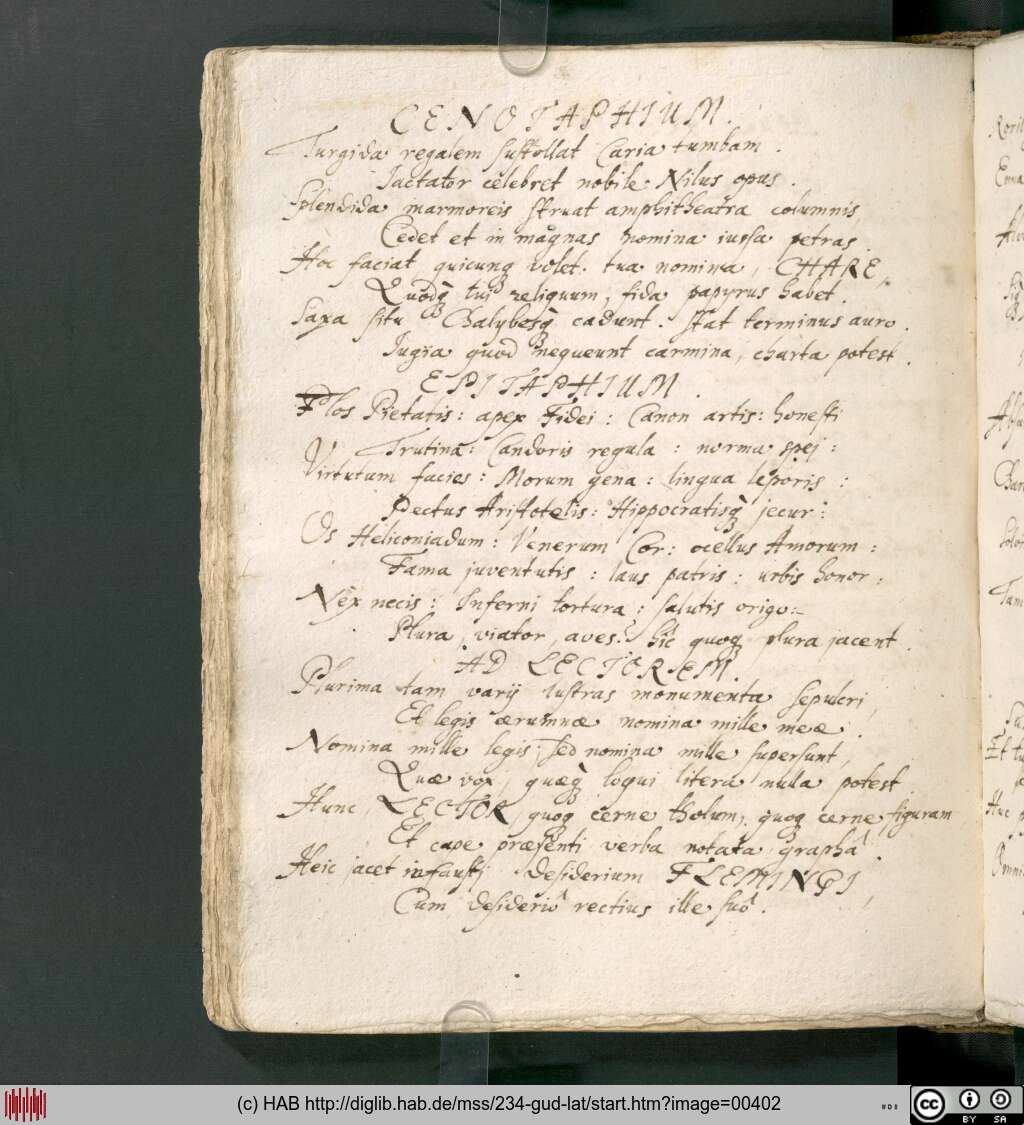 CENOTAPHIUM.
Turgida regalem sustollat Caria tumbam.
Jactator celebret nobile Nilus opus.
Splendida marmoreis struat amphitheatra columnis,
Cedet et in magnas nomina iussa petras.
Hoc faciat quicunq volet. tua nomina, CHARE,
Quodq̀ tui reliquum, fida papyrus habet.
Saxa situ Chalybesq̀ cadunt. stat terminus auro.
Jugia quod nequeunt carmina, charta potest.
EPITAPHIUM.
Flos Pietatis: apex Fidei: Canon artis: honesti
Trutina: Candoris regula: norma spei:
Virtutum facies: Morum gena: lingua leporis:
Pectus Aristotelis: Hippocratisq̀ jecur:
Os Heliconiadum: Venerum Cor: ocellus Amorum:
Fama juventutis: laus patris: urbis honor:
Nex necis: Inferni tortura: salutis origo:
Plura, viator, aves. hîc quoq plura jacent.
AD LECTOREM.
Plurima tam varij lustras monumenta sepulcri,
Et legis ærumnæ nomina mille meæ.
Nomina mille legis; sed nomina mille supersunt,
Quæ vox, quæq̀ loqui litera nulla potest
Hunc LECTOR, quoq cerne tholum, quoq cerne figuram
Et cape præsenti verba notata graphâ.
Heic jacet infausti desiderium FLEMINGI,
Cum desideriô rectius ille suô.
(c) HAB http://diglib.hab.de/mss/234-gud-lat/start.htm?image=00402
cc BY SA